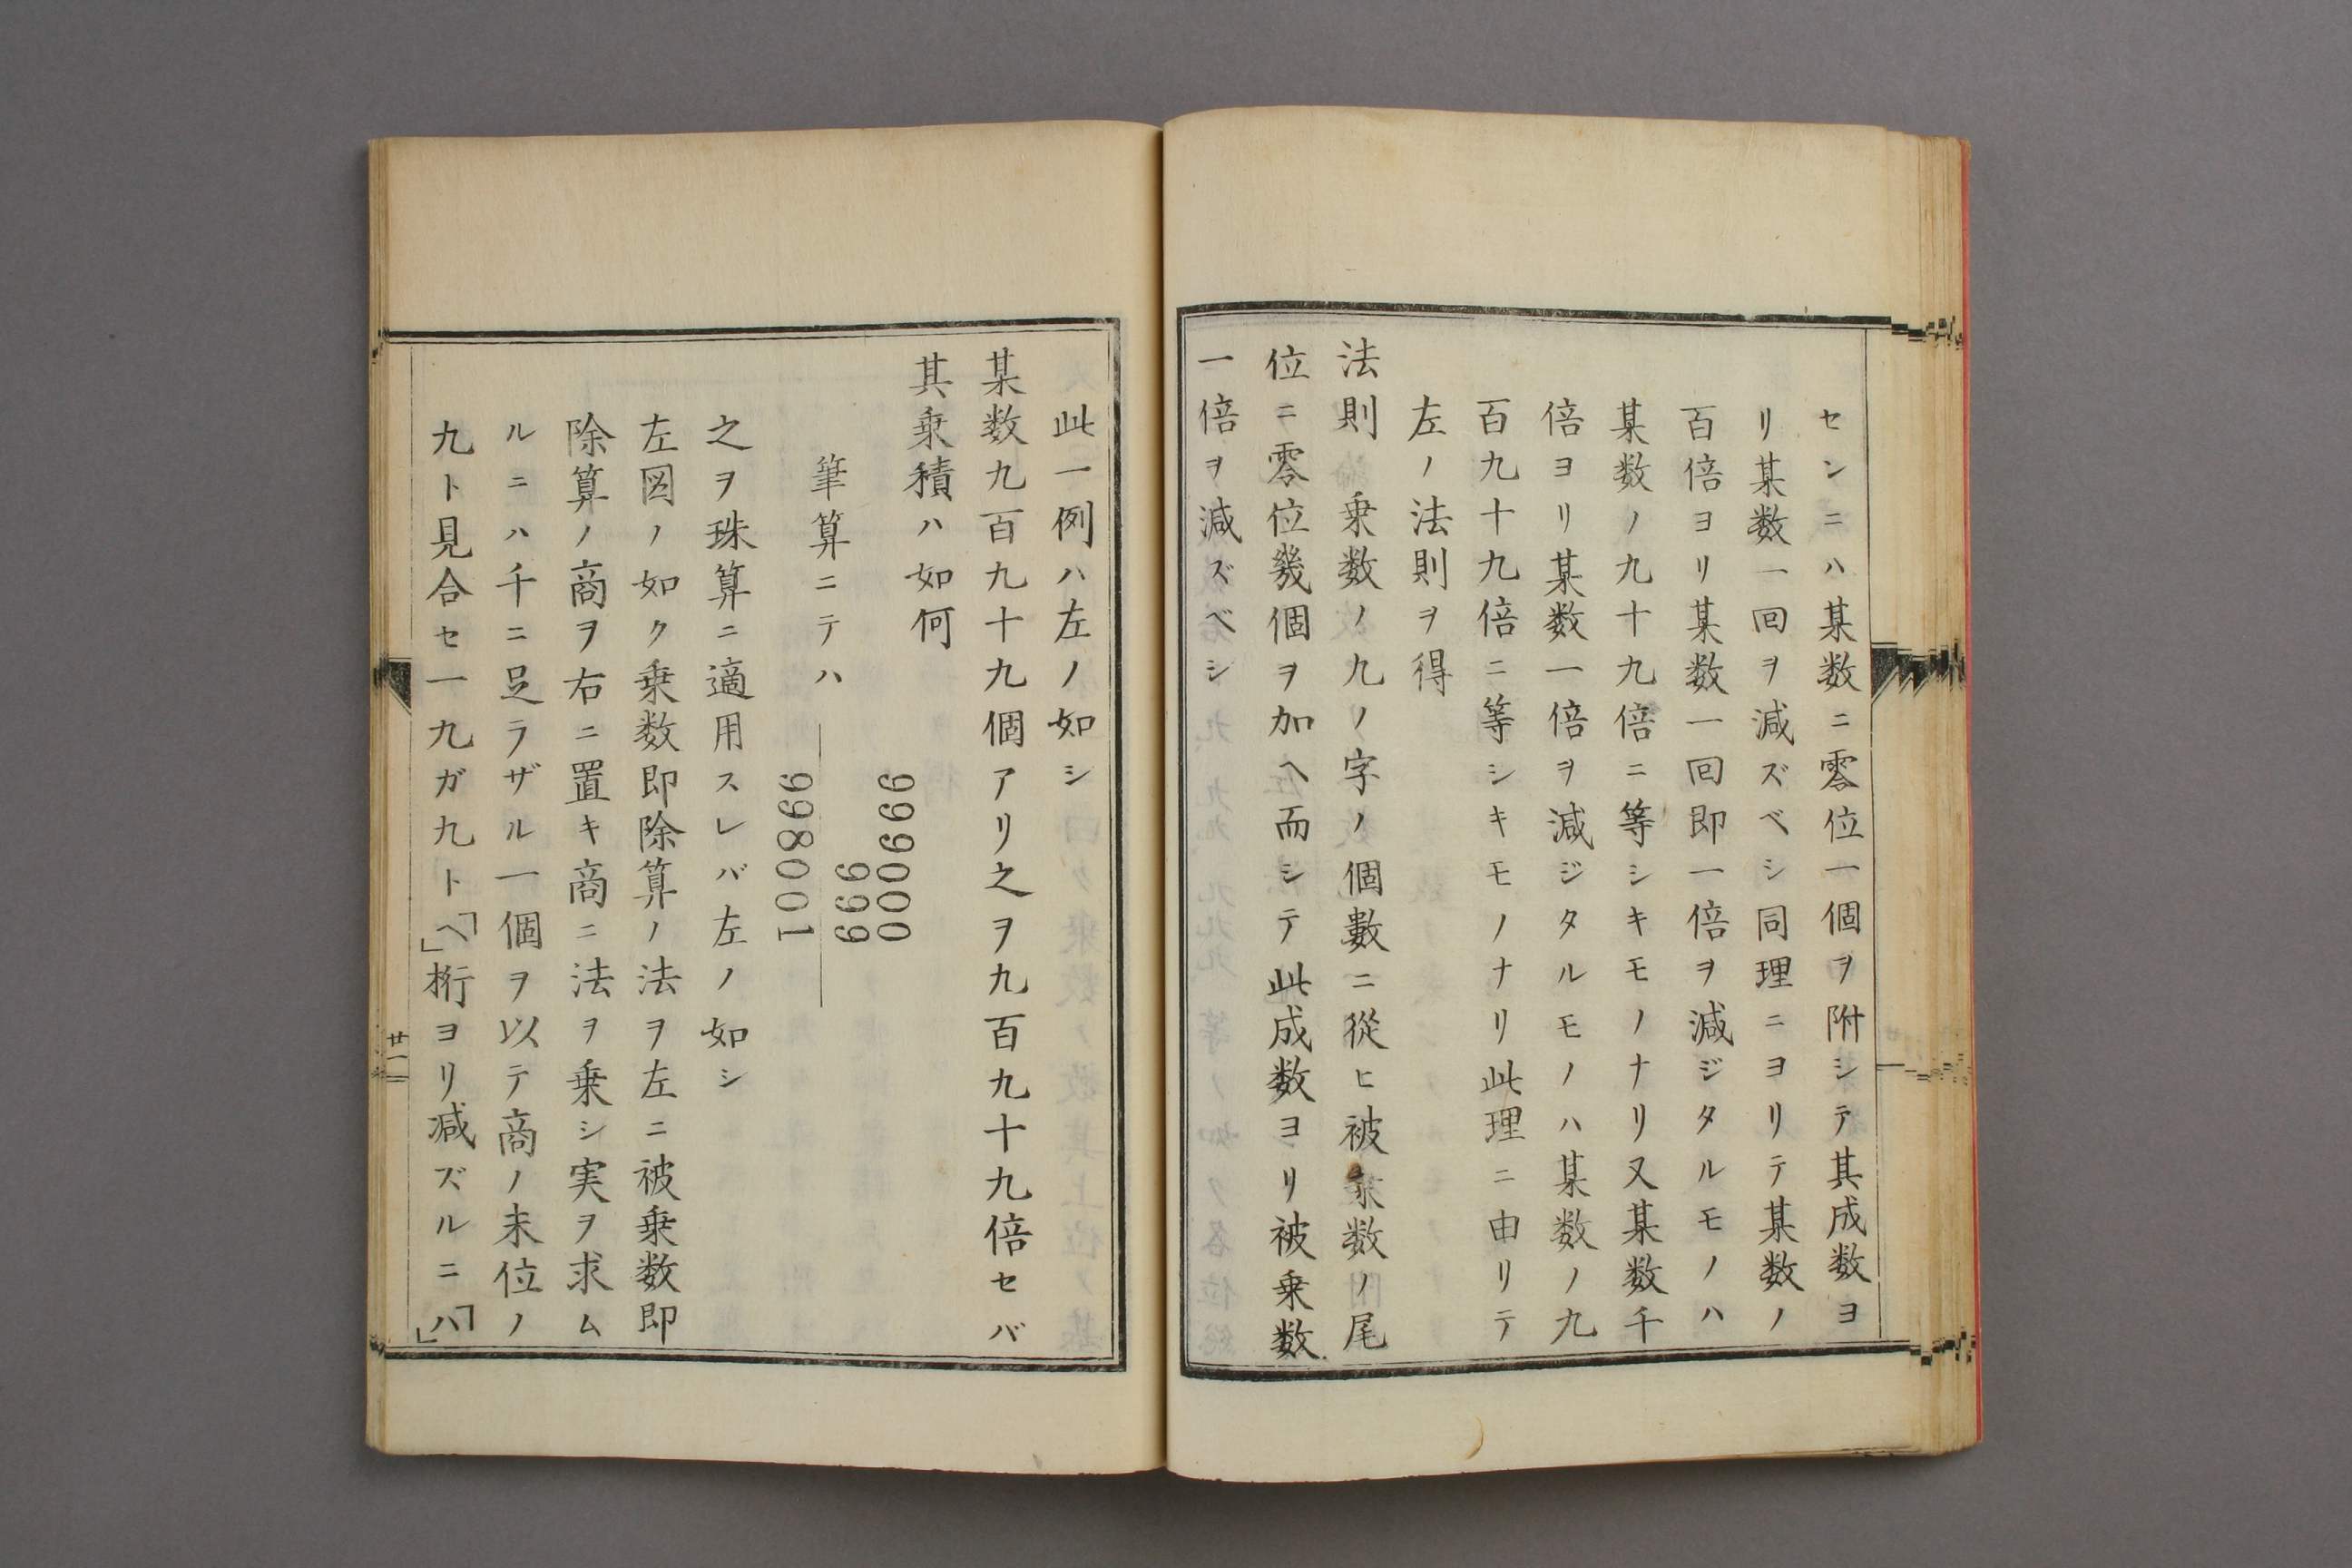 センニハ某数ニ零位一個ヲ附シテ其成数ヨ
リ某数一回ヲ減ズベシ同理ニヨリテ某数ノ
百倍ヨリ某数一回即一倍ヲ減ジタルモノハ
某数ノ九十九倍ニ等シキモノナリ又某数千
倍ヨリ某数一倍ヲ減ジタルモノハ某数ノ九
百九十九倍ニ等シキモノナリ此理ニ由リテ
左ノ法則ヲ得
法則 乗数ノ九ノ字ノ個數ニ從ヒ被乗数ノ尾
位ニ零位幾個ヲ加ヘ而シテ此成数ヨリ被乗数
一倍ヲ減ズベシ
此一例ハ左ノ如シ
某数九百九十九個アリ之ヲ九百九十九倍セバ
其乗積ハ如何
999000
999
筆算ニテハ
998001
之ヲ珠算ニ適用スレバ左ノ如シ
左図ノ如ク乗数即除算ノ法ヲ左ニ被乗数即
除算ノ商ヲ右ニ置キ商ニ法ヲ乗シ実ヲ求ム
ルニハ千ニ足ラザル一個ヲ以テ商ノ末位ノ
九ト見合セ一九ガ九ト「ヘ」桁ヨリ減ズルニ「ハ」
廿一